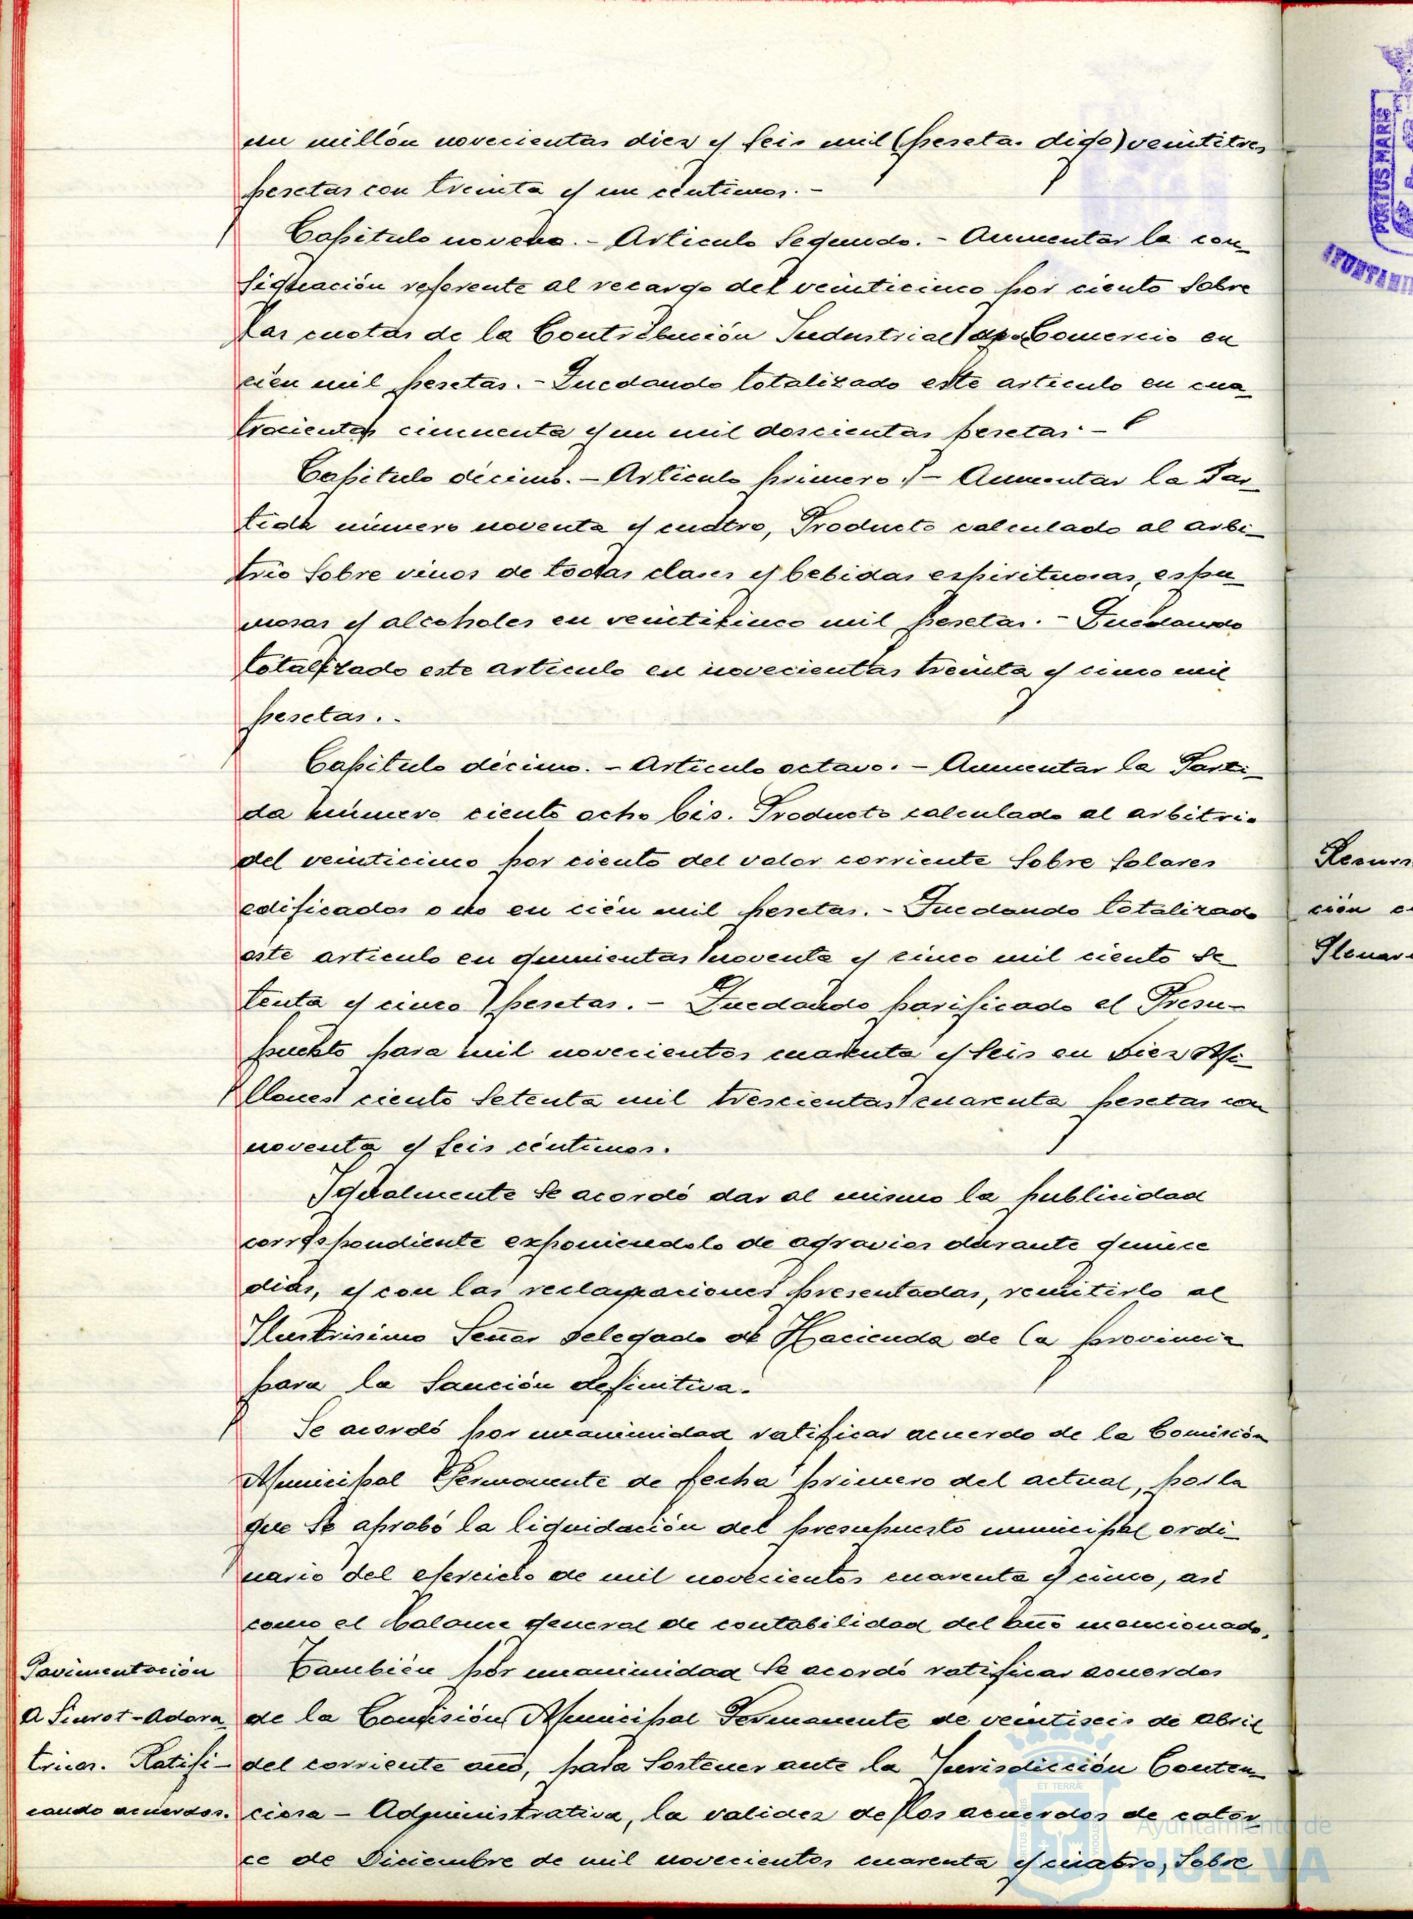 un millón novecientas diez y seis mil (peseta. digo) veintitres
pesetas con treinta y un centimos. -
Capitulo noveno. - Articulo Segundo. - Aumentar la con-
signación referente al recargo del veinticinco por ciento sobre
las cuotas de la Contribución Industrial de Comercio en
cien mil pesetas. - Quedando totalizado este articulo en cua-
trocientas cincuenta y un mil doscientas pesetas. -
Capitulo décimo. - Articulo primero. - Aumentar la Par-
tida número noventa y cuatro, Producto calculado al arbi-
trio sobre vinos de todas clases y bebidas espirituosas, espu-
mosas y alcoholes en veinticinco mil pesetas. - Quedando
totalizado este articulo en novecientas treinta y cinco mil
pesetas. -
Capitulo décimo. - Articulo octavo. - Aumentar la Parti-
da número ciento ocho bis. Producto calculado al arbitrio
del veinticinco por ciento del valor corriente sobre solares
edificados o no en cién mil pesetas. - Quedando totalizado
este articulo en quinientas noventa y cinco mil ciento se-
tenta y cinco pesetas. - Quedando parificado el Presu-
puesto para mil novecientos cuarenta y seis en Diez Mi-
llones ciento setenta mil trescientas cuarenta pesetas con
noventa y seis céntimos.
Igualmente se acordó dar al mismo la publicidad
correspondiente exponiendolo de agravios durante quince
dias, y con las reclamaciones presentadas, remitirlo al
Ilustrisimo Señor Delegado de Hacienda de la provincia
para la sanción definitiva.
Se acordó por unanimidad ratificar acuerdo de la Comisión
Municipal Permanente de fecha primero del actual, por la
que se aprobó la liquidación del presupuesto municipal ordi-
nario del ejercicio de mil novecientos cuarenta y cinco, asi
como el balance general de contabilidad del año mencionado.
Pavimentación
a Siurot - Adora-
trices. Ratifi-
cando acuerdos.
También por unanimidad se acordó ratificar acuerdos
de la Comisión Municipal Permanente de veintiseis de abril
del corriente año, para sostener ante la Jurisdicción Conten-
ciosa - Administrativa, la validez de los acuerdos de cator-
ce de Diciembre de mil novecientos cuarenta y cuatro, sobre
PORTUS MARIS
Recurs
ción
Plenari
ET TERRÆ
Ayuntamiento de
HUELVA